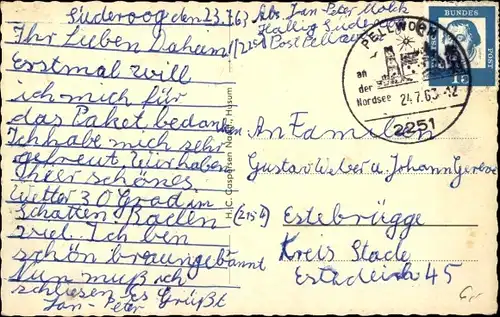 Süderoog den 23.7.63
Ihr Lieben Daheim!
Erstmal will
ich mich für
das Paket bedanken
Ich habe mich sehr
gefreut. Wir haben
hier schönes
Wetter 30 Grad im
Schatten. Baden
viel. Ich ben
schön braungebrannt
Nun muß ich
schliesen Es Grüßt
Jan-Peter
Abs. Jan-Peter
Hallig Süderoog
(2251) Post Pellworm
H. C. Caspersen Nachf., Husum
PELLWORM
an
der
Nordsee 24.7.63-12
2251
DEUTSCHE
BUNDES
POST
15
An Familien
Gustav Weber u. Johann
(2151) Estebrügge
Kreis Stade
Estedeich 45